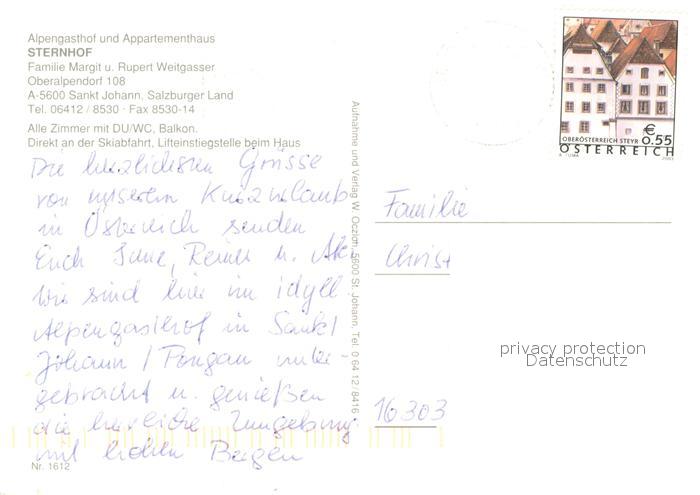 Alpengasthof und Appartementhaus
STERNHOF
Familie Margit u. Rupert Weitgasser
Oberalpendorf 108
A-5600 Sankt Johann, Salzburger Land
Tel. 06412 / 8530 · Fax 8530-14
Alle Zimmer mit DU/WC, Balkon.
Direkt an der Skiabfahrt, Lifteinstiegstelle beim Haus
Die herzlichsten Grüsse
von unserem Kurzurlaub
in Österreich senden
Euch Reiner u.
Wir sind hier im idyll.
Alpengasthof in Sankt
Johann / Pongau unter-
gebracht u. genießen
die herrliche Umgebung
mit hohen Bergen
Nr. 1612
Aufnahme und Verlag W. Oczlon, 5600 St. Johann, Tel. 0 64 12 / 8416
OBERÖSTERREICH STEYR
€
0.55
ÖSTERREICH
A. TUMA
2003
Familie
Christ
privacy protection
Datenschutz
16303